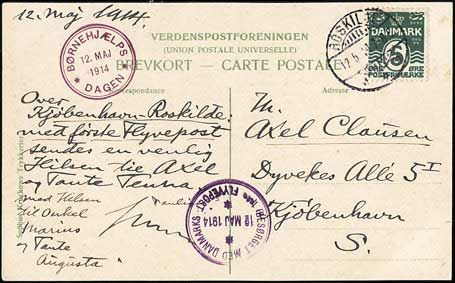 12. Maj 1914.
VERDENSPOSTFORENINGEN
(UNION POSTALE UNIVERSELLE)
BREVKORT – CARTE POSTALE
BØRNEHJÆLPS
12. MAJ
1914
DAGEN
ROSKIL
DANMARK
5
ØRE ØRE
POSTFRIMÆRKE
Correspondance
Adresse
Over
Kjöbenhavn-Roskilde:
med første Flyvepost
sendes en venlig
Hilsen til Axel
og Tante
med Hilsen
til Onkel
Marius
og Tante
Augusta
BESØRGET MED DANMARKS
12 MAJ 1914
1ste FLYVEPOST
Hr.
Axel Clausen
Dyvekes Allé 5 I
Kjöbenhavn
S.